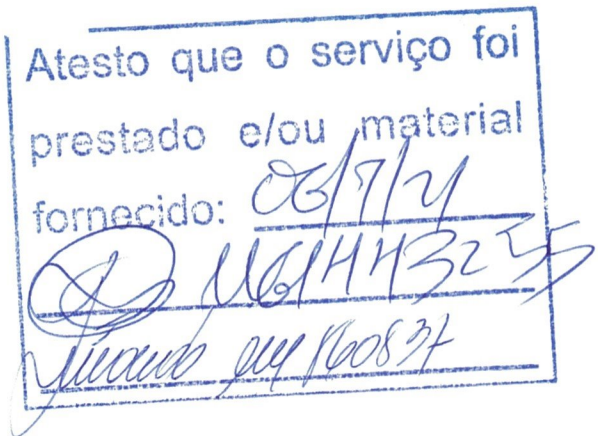 Atesto que o serviço foi
prestado e/ou material
fornecido: 06/7/21
MG14443255
160837